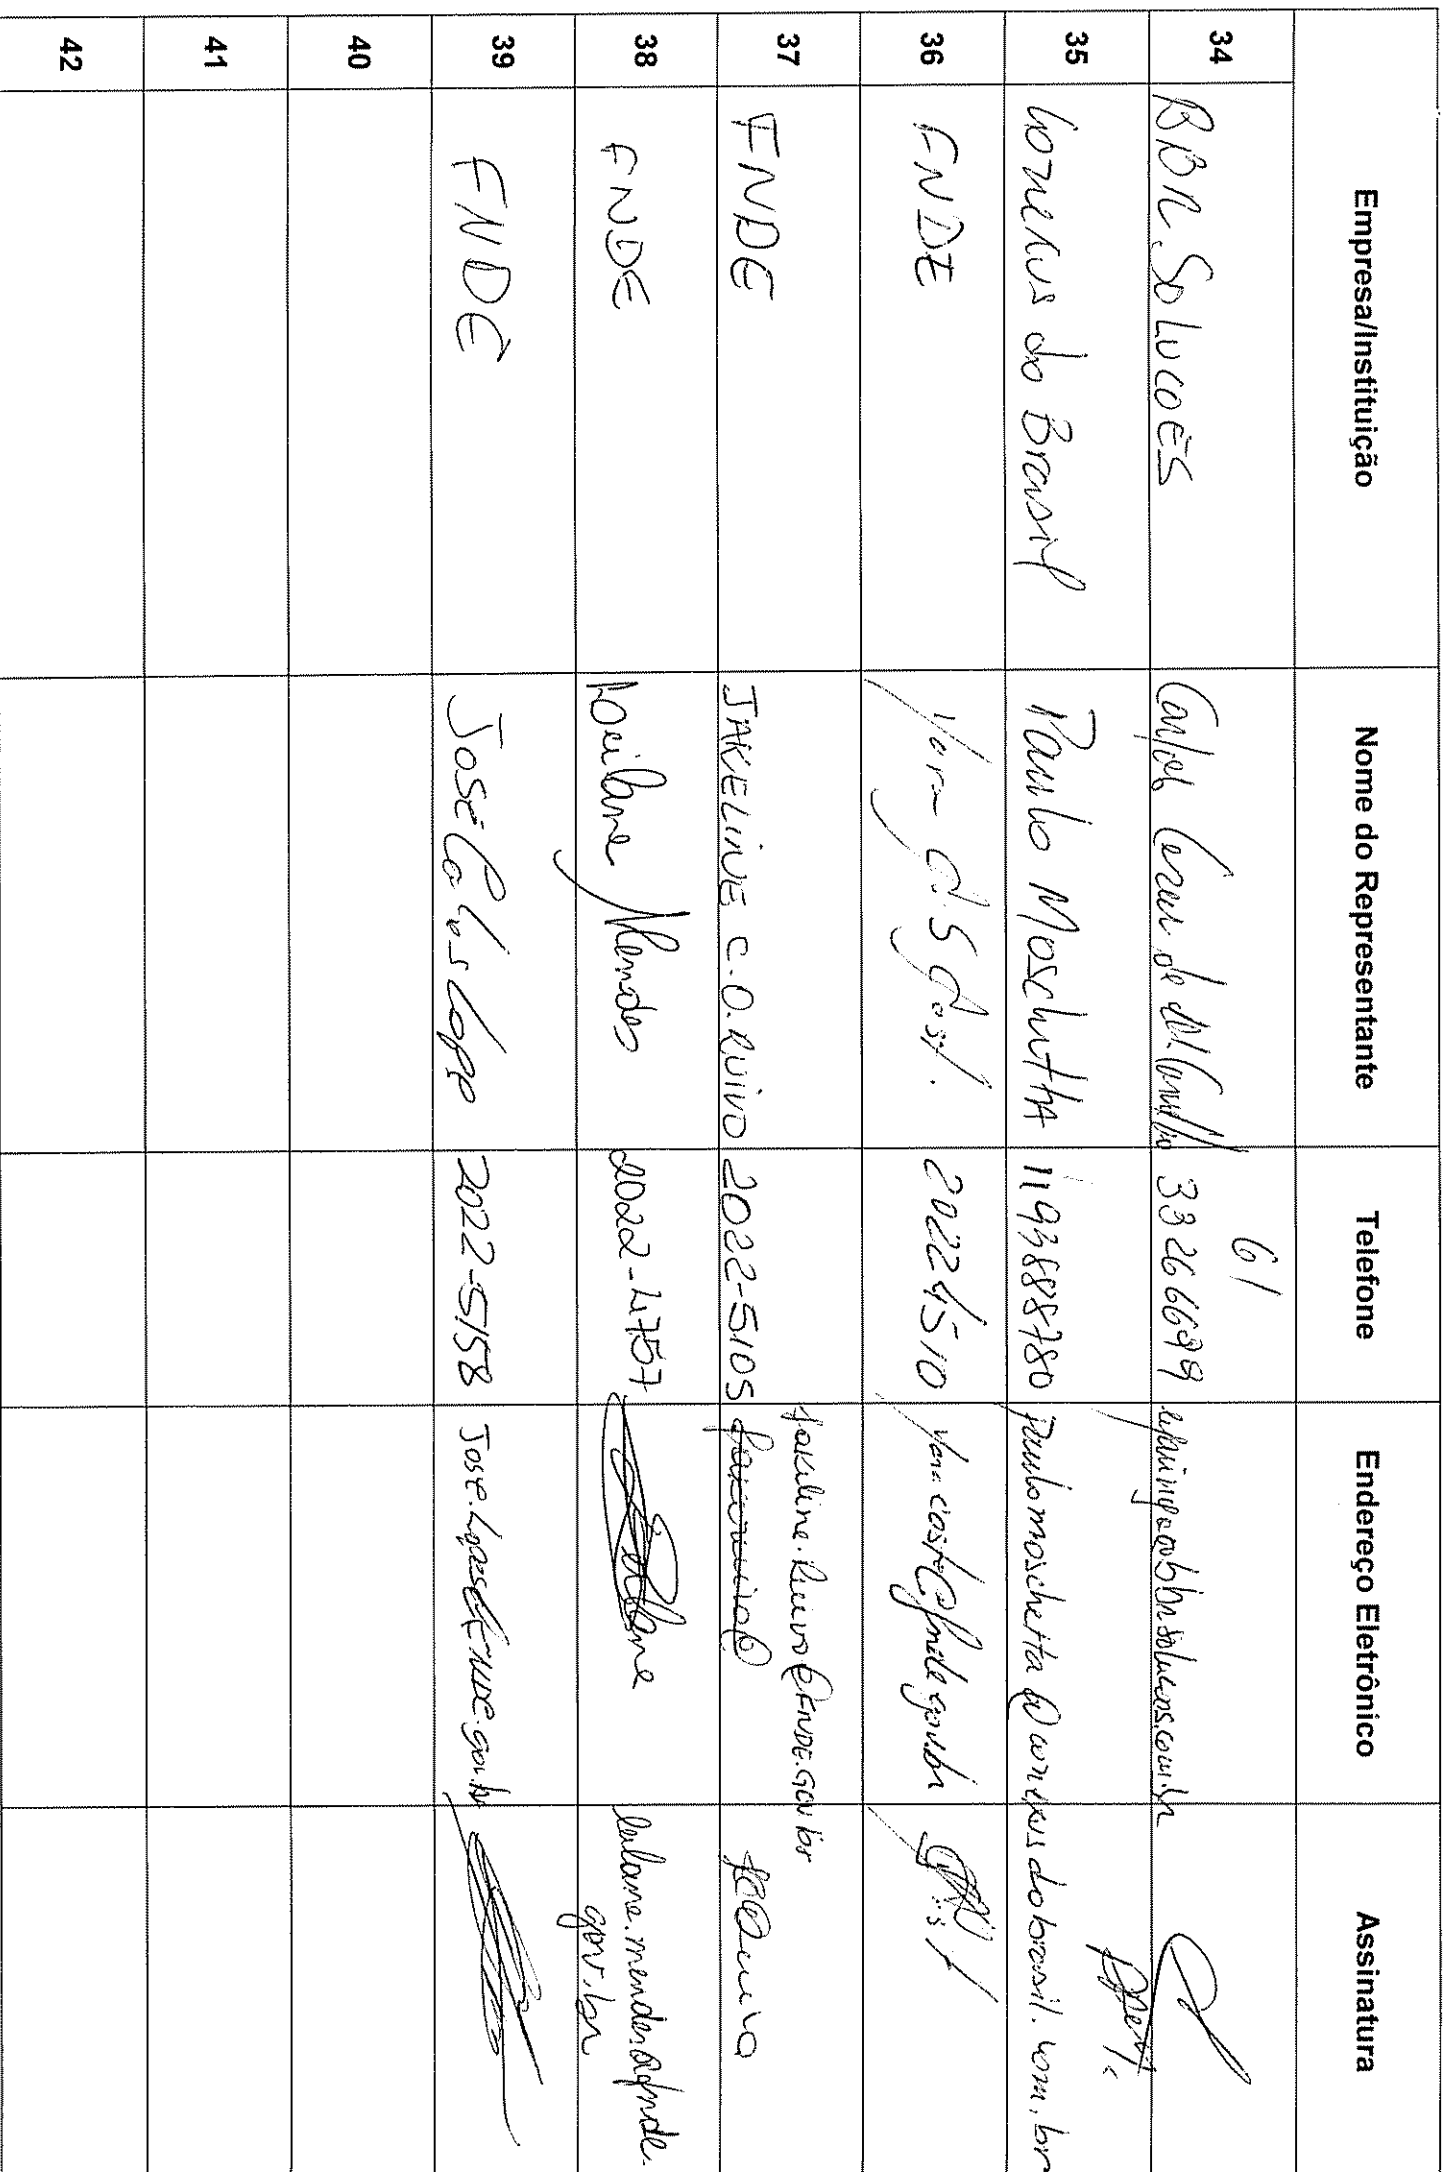 Empresa/Instituição Nome do Representante Telefone Endereço Eletrônico Assinatura
34 BBR SOLUCOES Carlos Cezar de M. Carvalho 61 33266699
35 do Brasil Paulo Moschetta 11 93888780 paulomoschetta@ dobrasil.com.br
36 FNDE Yara C. S Costa 20224510 yara.costa@fnde.gov.br
37 FNDE JAKELINE C.O. RUIVO 2022-5105 jakeline.Ruivo@FNDE.GOV.br
38 FNDE Leilane Mendes 2022-4757 leilane.mendes@fnde.
gov.br
39 FNDE José Carlos Lopes 2022-5158 Jose.Lopes@FNDE.gov.br
40
41
42